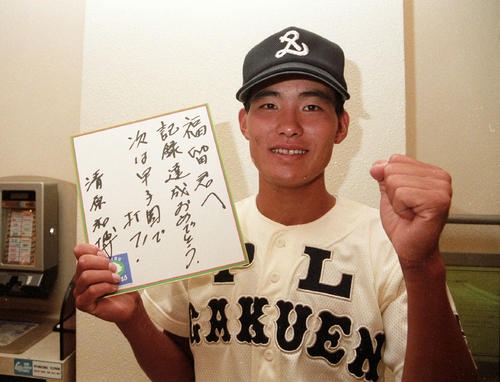 福留君へ
記録達成おめでとう。
次は甲子園で
打て!
清原和博
PL
GAKUEN